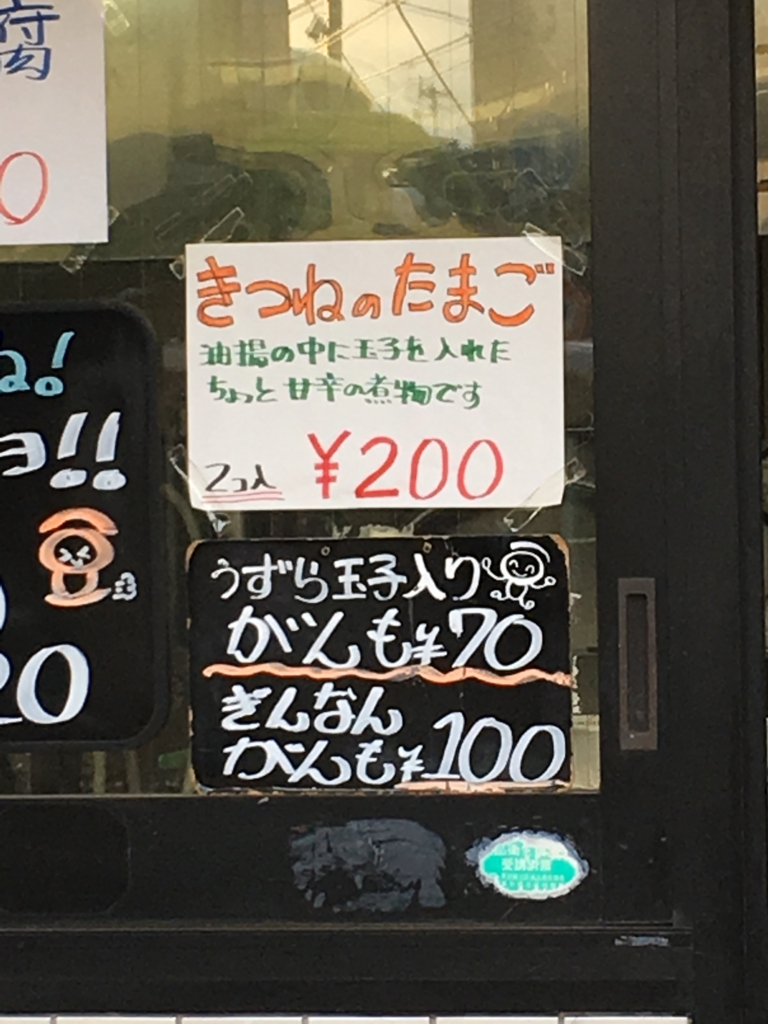 腐
0
ね!
ョ!!
20
きつねのたまご
油揚の中に玉子を入れた
ちょっと甘辛の煮物です
2コ入 ¥200
うずら玉子入り
がんも¥70
ぎんなん
がんも¥100
受講済票